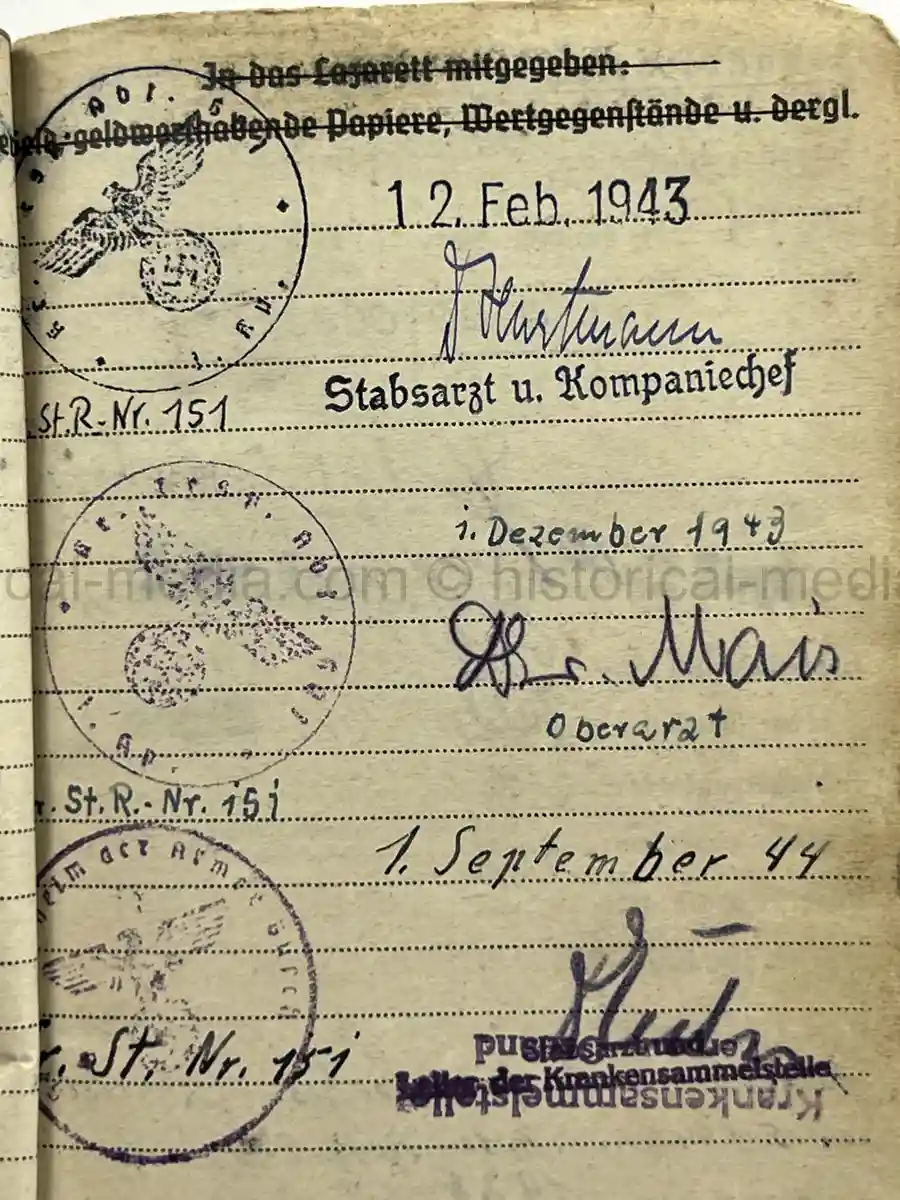 In das Lazarett mitgegeben:
geldwerthabende Papiere, Wertgegenstände u. dergl.
12. Feb. 1943
Stabsarzt u. Kompaniechef
St.R.-Nr. 151
Abt. 5
1. Kp.
Kr. Ers. Abt.
1. Kp
1. Dezember 1943
historical-media.com © historical-media
Dr. Mais
Oberarzt
St.R.-Nr. 151
der Arme
1. September 44
St. Nr. 151
Stabsarzt und
Leiter der Krankensammelstelle
Krankensammelstelle